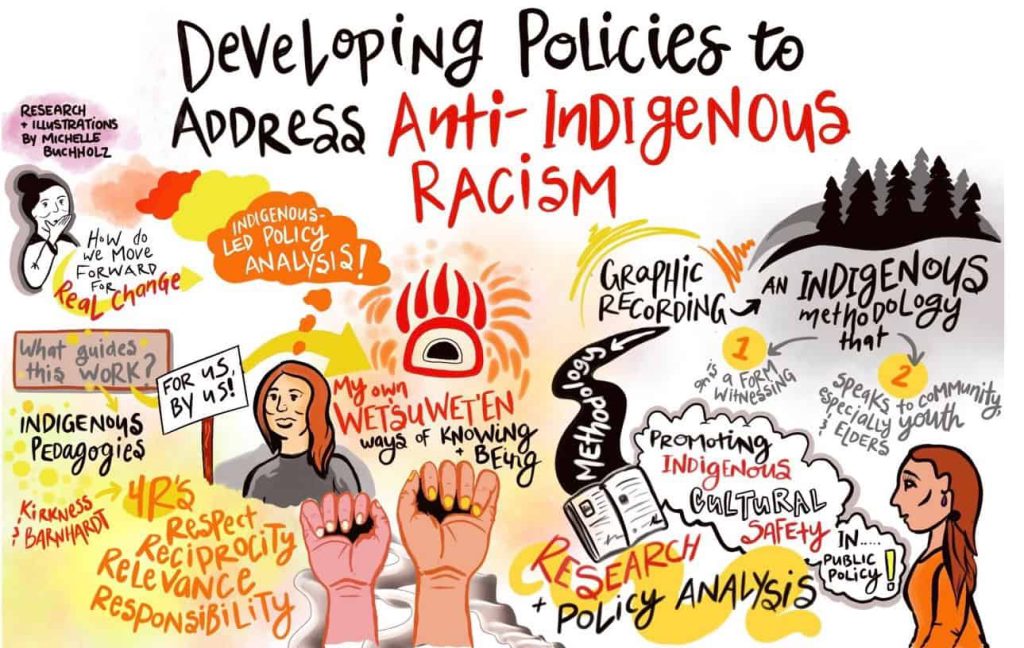 Developing Policies to
Address Anti-Indigenous
Racism
RESEARCH
+ ILLUSTRATIONS
BY MICHELLE
BUCHHOLZ
How do
we move
forward
for
Real Change
INDIGENOUS-
LED POLICY
ANALYSIS!
What guides
this work?
FOR US,
BY US!
INDIGENOUS
Pedagogies
Kirkness
& BARNHARDT
4R's
Respect
Reciprocity
Relevance
Responsibility
My own
WET'SUWET'EN
ways of knowing
+ Being
GRAPHIC
RECORDING
AN INDIGENOUS
methodology
that
1
is a form
of
witnessing
2
speaks to community,
especially youth
& ELDERS
Methodology
PROMOTING
INDIGENOUS
CULTURAL
SAFETY
IN.....
PUBLIC
POLICY!
RESEARCH
+ POLICY ANALYSIS